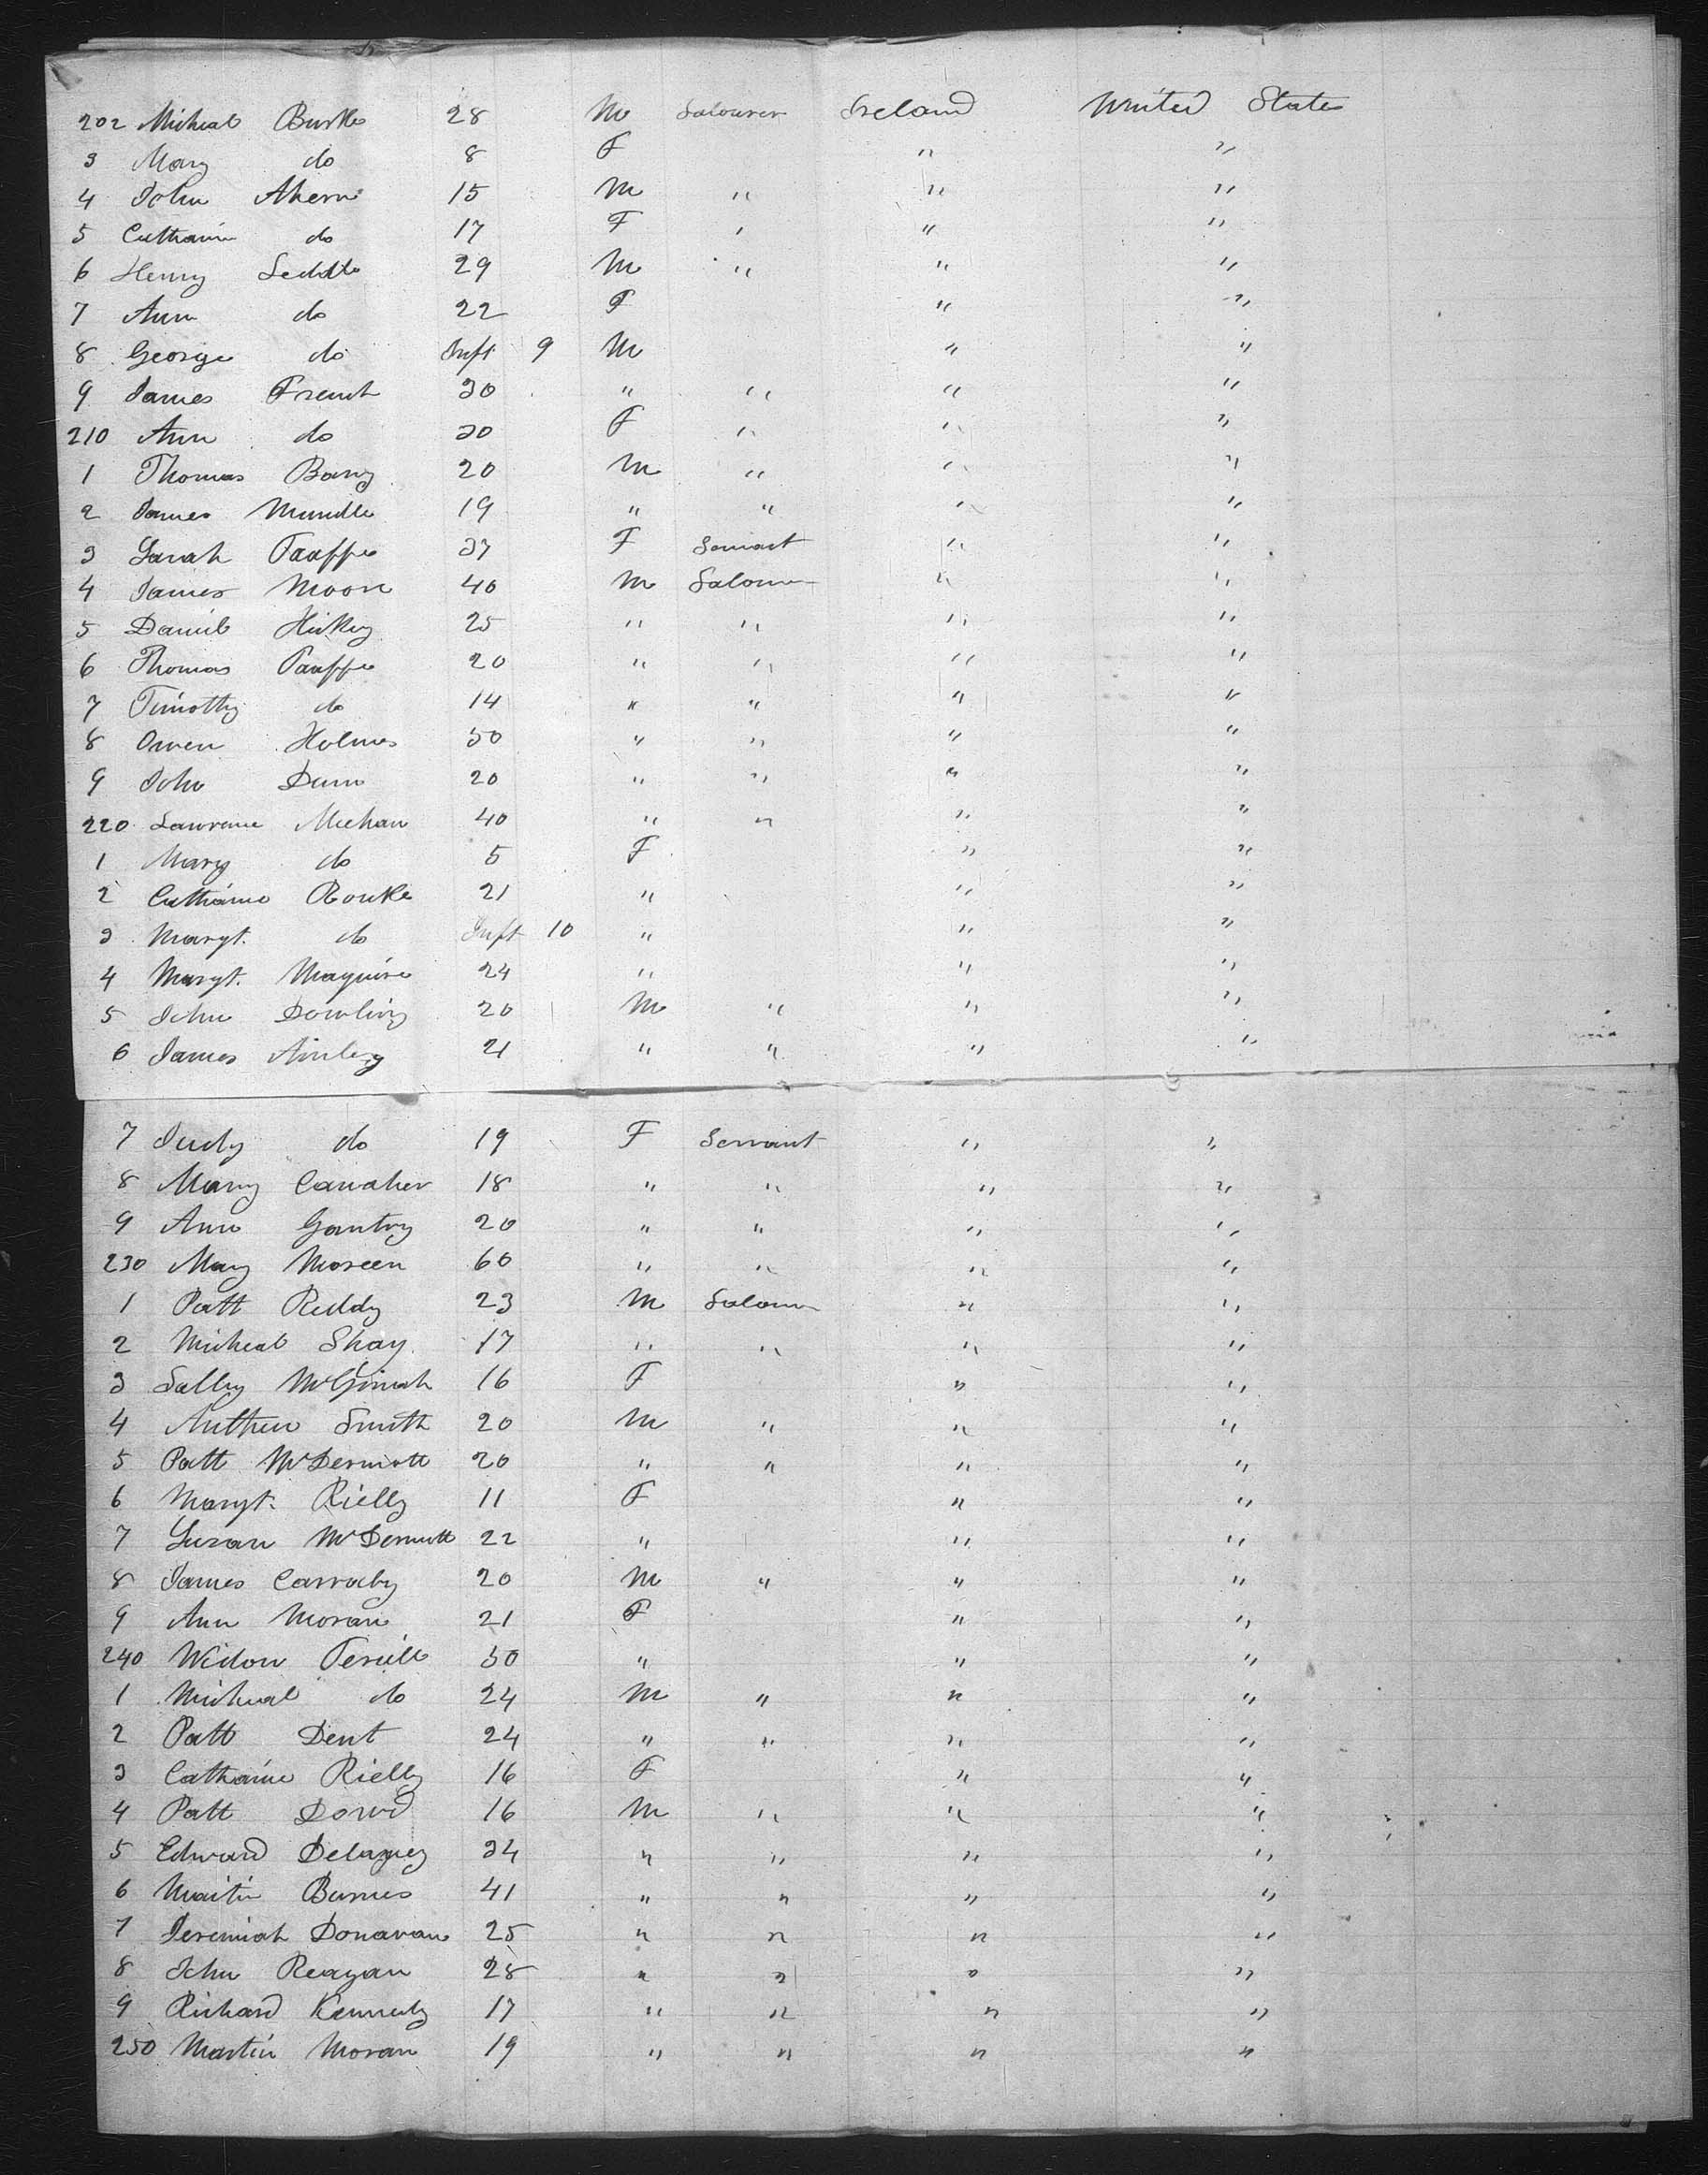 202 Micheal Burke 28 M Labourer Ireland United States
3 Mary do 8 F " "
4 John Ahern 15 M " " "
5 Catharine do 17 F " " "
6 Henry 29 M " " "
7 Ann do 22 F " "
8 George do Inft 9 M " "
9 James French 30 " " " "
210 Ann do 30 F " " "
1 Thomas Barry 20 M " " "
2 James 19 " " " "
3 Sarah Taaffe 37 F Servant " "
4 James Moore 40 M Labourer " "
5 Daniel Hickey 25 " " " "
6 Thomas Taaffe 20 " " " "
7 Timothy do 14 " " " "
8 Owen Holmes 50 " " " "
9 John Dunn 20 " " " "
220 Lawrence Meehan 40 " " " "
1 Mary do 5 F " "
2 Catharine Rourke 21 " " "
3 Margt. do Inft 10 " " "
4 Margt. Maguire 24 " " "
5 John Dowling 20 M " " "
6 James Ainley 21 " " " "
7 Judy do 19 F Servant " "
8 Mary Canaher 18 " " " "
9 Ann Gantry 20 " " " "
230 Mary Moreen 60 " " " "
1 Patt Reddy 23 M Labour " "
2 Micheal Shay 17 " " " "
3 Sally 16 F " "
4 Smith 20 M " " "
5 Patt McDermott 20 " " " "
6 Margt. Rielly 11 F " "
7 Suzan McDermott 22 " " "
8 James 20 M " " "
9 Ann Moran 21 F " "
240 Widow 50 " " "
1 Micheal do 24 M " " "
2 Patt Dent 24 " " " "
3 Catharine Rielly 16 F " "
4 Patt Dowd 16 M " " "
5 Edward Delaney 34 " " " "
6 Martin Burnes 41 " " " "
7 Jeremiah Donavan 25 " " " "
8 John Reagan 28 " " " "
9 Richard Kennedy 17 " " " "
250 Martin Moran 19 " " " "